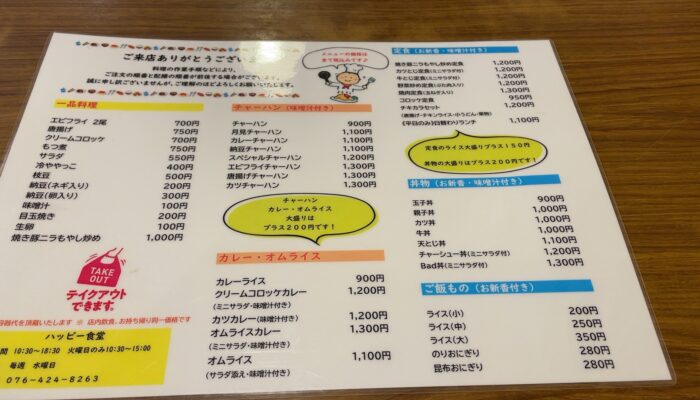 ご来店ありがとうござい
料理の作業手順などにより、
ご注文の順番と配膳の順番が前後する場合がございます。
誠に申し訳ございませんが、ご理解のほどよろしくお願いいたします。
メニューの価格は
全て税込みです♪
一品料理
エビフライ 2尾 700円
唐揚げ 750円
クリームコロッケ 700円
もつ煮 750円
サラダ 550円
冷ややっこ 400円
枝豆 500円
納豆(ネギ入り) 200円
納豆(卵入り) 300円
味噌汁 100円
目玉焼き 200円
生卵 100円
焼き豚ニラもやし炒め 1,000円
TAKE OUT
テイクアウト
できます。
容器代を頂戴いたします ※ 店内飲食、お持ち帰り同一価格です
ハッピー食堂
間 10:30~18:30 火曜日のみ10:30~15:00
毎週 水曜日
076-424-8263
チャーハン(味噌汁付き)
チャーハン 900円
月見チャーハン 1,100円
カレーチャーハン 1,100円
納豆チャーハン 1,100円
スペシャルチャーハン 1,200円
エビフライチャーハン 1,300円
唐揚げチャーハン 1,300円
カツチャーハン 1,300円
チャーハン
カレー・オムライス
大盛りは
プラス200円です!
カレー・オムライス
カレーライス 900円
クリームコロッケカレー 1,200円
(ミニサラダ・味噌汁付き)
カツカレー(味噌汁付き) 1,200円
オムライスカレー 1,300円
(ミニサラダ・味噌汁付き)
オムライス 1,100円
(サラダ添え・味噌汁付き)
定食(お新香・味噌汁付き)
焼き豚ニラもやし炒め定食 1,200円
カツとじ定食(ミニサラダ付) 1,200円
牛とじ定食(ミニサラダ付) 1,200円
野菜炒め定食(ぶた肉入り) 1,200円
焼肉定食(玉ねぎ入り) 1,300円
コロッケ定食 950円
チキカラセット 1,200円
(唐揚げ・チキンライス・小うどん・果物)
《平日のみ》日替わりランチ 1,100円
定食のライス大盛りプラス150円
丼物の大盛りはプラス200円です!
丼物(お新香・味噌汁付き)
玉子丼 900円
親子丼 1,000円
カツ丼 1,000円
牛丼 1,000円
天とじ丼 1,100円
チャーシュー丼(ミニサラダ付) 1,200円
Bad丼(ミニサラダ付) 1,300円
ご飯もの(お新香付き)
ライス(小) 200円
ライス(中) 250円
ライス(大) 350円
のりおにぎり 280円
昆布おにぎり 280円